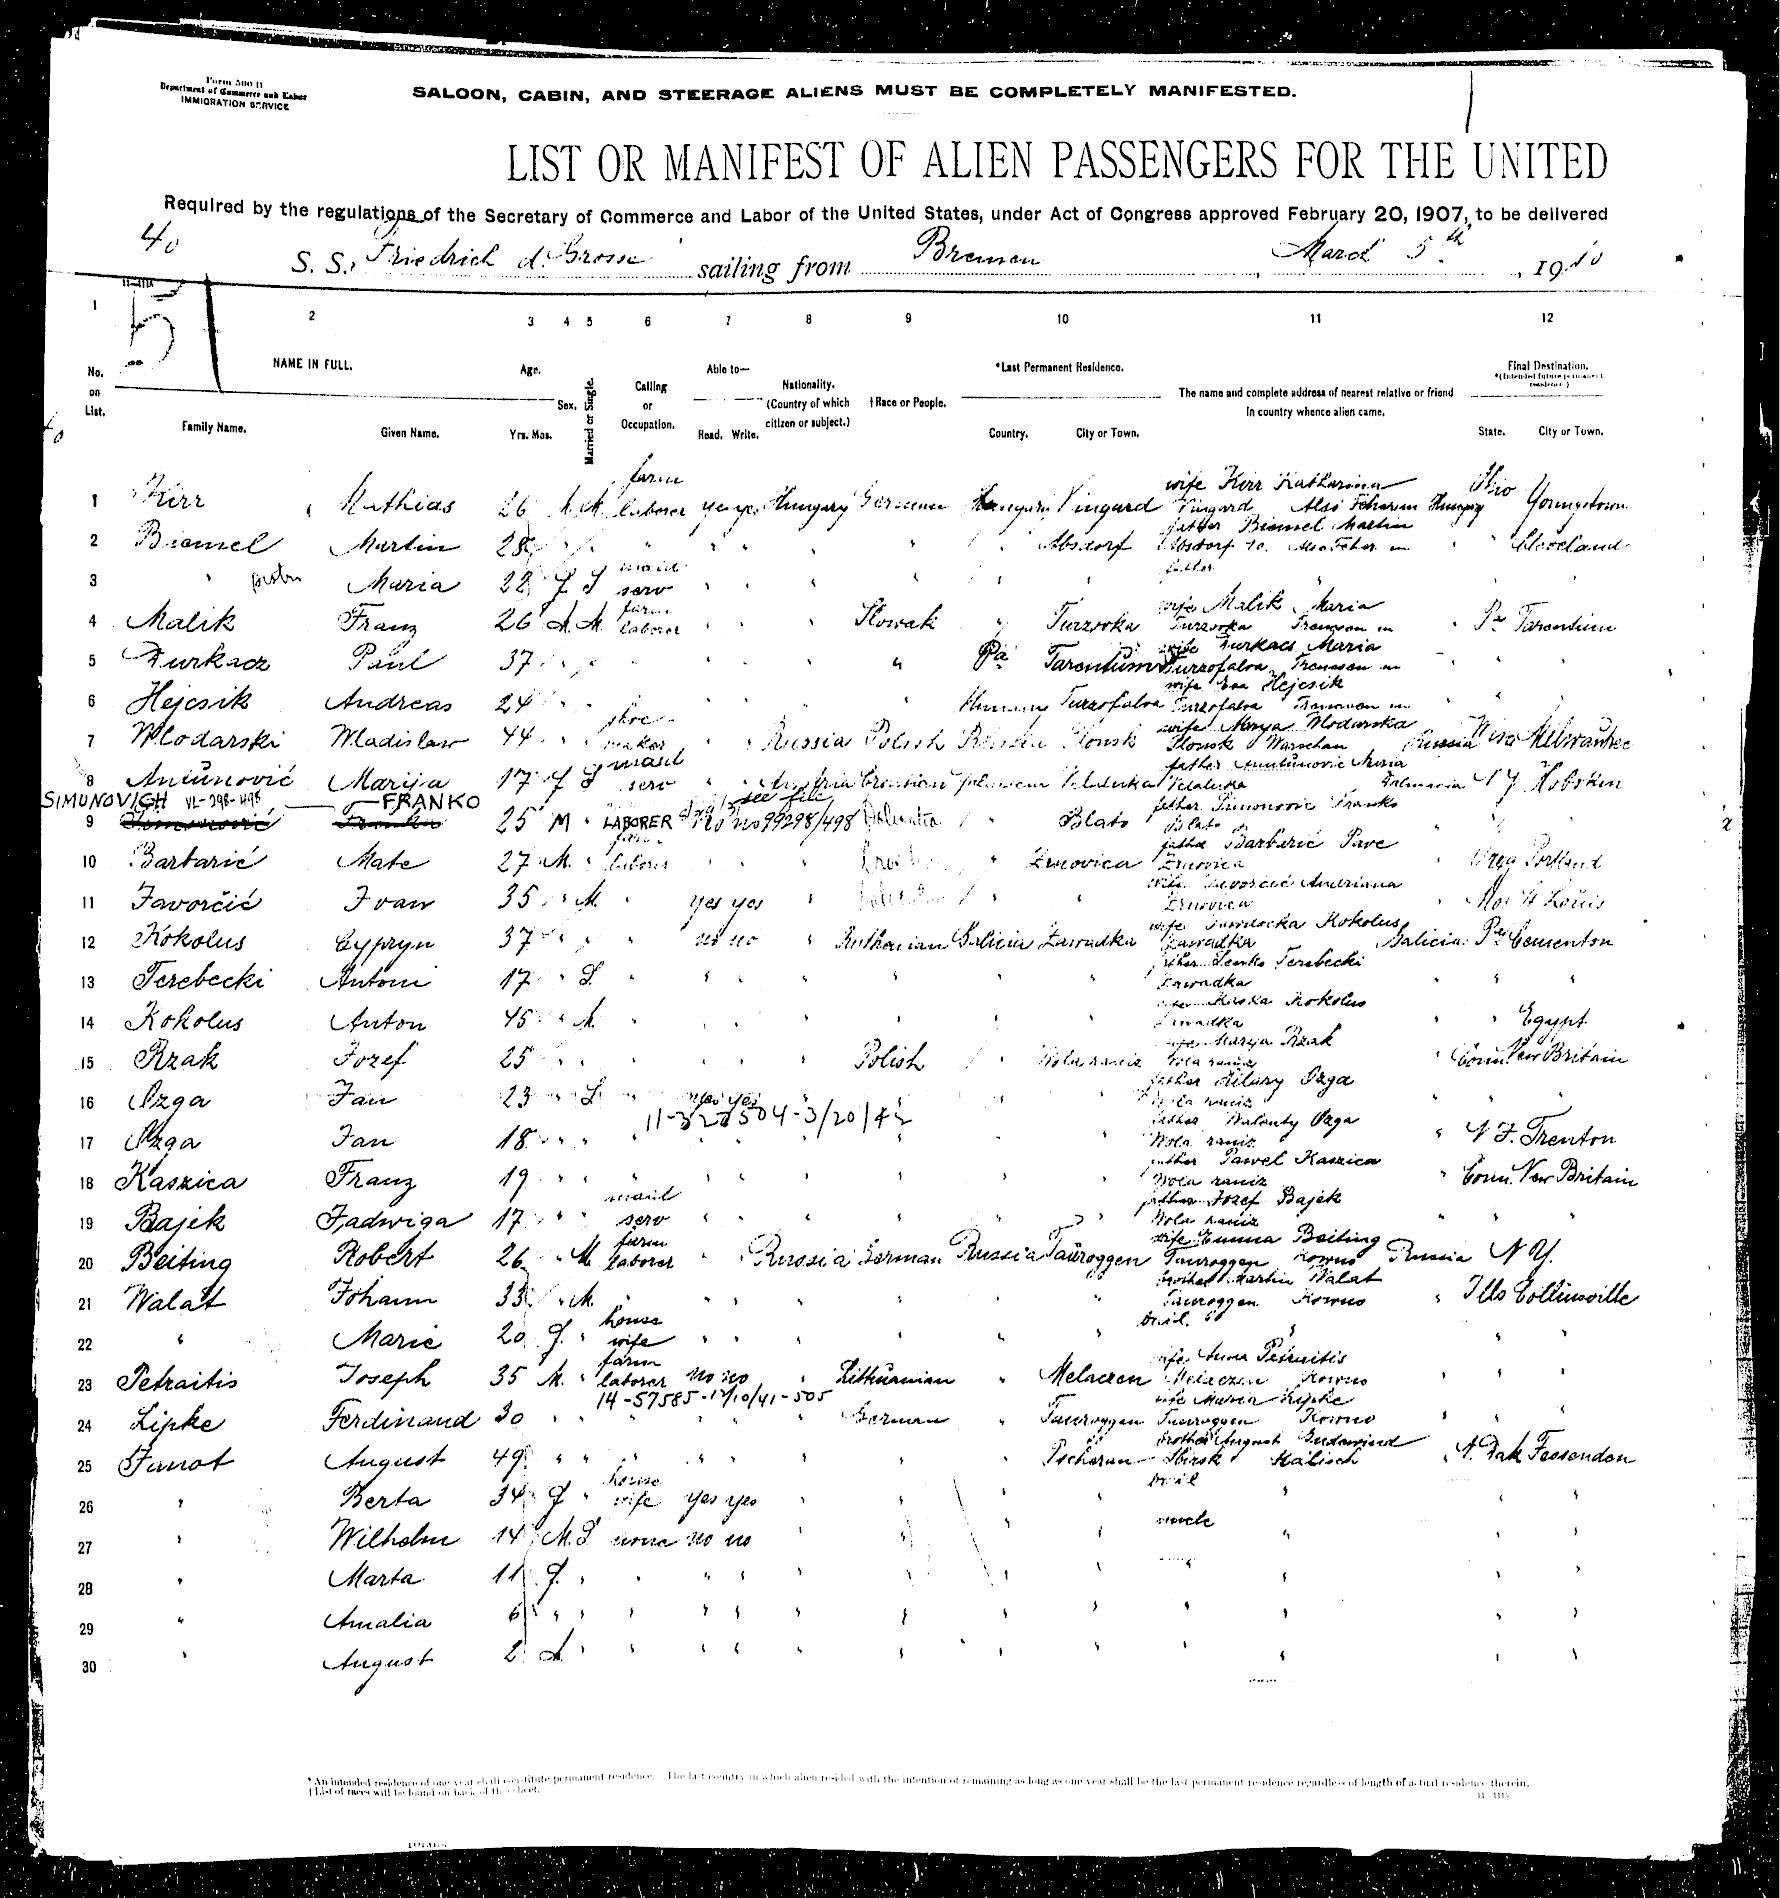 Form 500 B
Department of Commerce and Labor
IMMIGRATION SERVICE
SALOON, CABIN, AND STEERAGE ALIENS MUST BE COMPLETELY MANIFESTED.
LIST OR MANIFEST OF ALIEN PASSENGERS FOR THE UNITED
Required by the regulations of the Secretary of Commerce and Labor of the United States, under Act of Congress approved February 20, 1907, to be delivered
40
S. S. Friedrich d. Grosse sailing from Bremen, March 5th, 1910
5
1 2 3 4 5 6 7 8 9 10 11 12
No. on List.
NAME IN FULL.
Family Name. Given Name.
Age.
Yrs. Mos.
Sex.
Married or Single.
Calling or Occupation.
Able to—
Read. Write.
Nationality. (Country of which citizen or subject.)
†Race or People.
*Last Permanent Residence.
Country. City or Town.
The name and complete address of nearest relative or friend in country whence alien came.
Final Destination.
*(Intended future permanent residence.)
State. City or Town.
40
1 Kirr Mathias 26 M M farm laborer yes yes Hungary German Hungary Vingard wife Kirr Katharina Vingard Also Feharem Hungary Ohio Youngstown
2 Biemel Martin 28 " " " " " " " " Absdorf father Biemel Martin Absdorf " Cleveland
3 " Maria 22 f S maid serv " " " " " " father " " "
4 Malik Franz 26 M M farm laborer " " " Slowak " Turzovka wife Malik Maria Turzovka Trencsen " Pa Tarentum
5 Zurkacz Paul 37 " " " " " " " Pa Tarentum wife Zurkacs Maria Turzofalva Trencsen " " "
6 Hejcsik Andreas 24 " " " " " " " Hungary Turzofalva wife Eva Hejcsik Turzofalva Trencsen " " "
7 Wlodarski Wladislaw 44 " " shoe maker " " Russia Polish Russia Plonsk wife Marya Wlodarska Plonsk Warschau Russia Wisc Milwaukee
8 Antunović Marija 17 f S maid serv " " Austria Croatian Dalmacia Velaluka father Antunovic Velaluka Dalmacia N J Hoboken
SIMUNOVICH VL-298-498 FRANKO see file
9 Simonović Franko 25 M " LABORER no no 99298/498 Dalmatia " Blato father Simonovic Franko Blato " " "
10 Barbarić Mate 27 M " farm laborer " " " " Zrnovica father Barbaric Pave Zrnovica " Oreg Portland
11 Javorčić Ivan 35 " M " yes yes " " " wife Javorcic Zrnovica " Mo St Louis
12 Kokolus Cypryn 37 " " " no no " Ruthenian Galicia Zawadka wife Kokolus Zawadka Galicia Pa Cementon
13 Terebecki Antoni 17 " S " " " " " " " father Senko Terebecki Zawadka " " "
14 Kokolus Anton 45 " M " " " " " " " wife Kaska Kokolus Zawadka " " Egypt
15 Rzak Jozef 25 " " " " " " Polish " Wola raniz wife Marya Rzak Wola raniz " Conn. New Britain
16 Ozga Jan 23 " S " yes yes " " " " father Hilary Ozga Wola raniz " " "
11-327504-3/20/42
17 Ozga Jan 18 " " " " " " " " " father Walenty Ozga Wola raniz " N J. Trenton
18 Kaszica Franz 19 " " " " " " " " " father Pawel Kaszica Wola raniz " Conn. New Britain
19 Bajek Jadwiga 17 " " maid serv " " " " " " father Jozef Bajek Wola raniz " " "
20 Beiting Robert 26 " M farm laborer " " Russia German Russia Tauroggen wife Emma Beiting Tauroggen Kowno Russia N Y.
21 Walat Johann 33 " M " " " " " " " brother Martin Walat Tauroggen Kowno " Ills Collinsville
22 " Marie 20 f. " house wife " " " " " " " " " "
23 Petraitis Joseph 35 M. " farm laborer no no " Lithuanian " Melaczen wife Anna Petraitis Melaczen Kowno " " "
14-57585-12/10/41-505
24 Lipke Ferdinand 30 " " " " " " German " Tauroggen wife Maria Lipke Tauroggen Kowno " " "
25 Janot August 49 " " " " " " " " brother August Kalisch " N. Dak Fessenden
26 " Berta 34 f " house wife yes yes " " " " " " "
27 " Wilhelm 14 M. S none no no " " " " uncle " " "
28 " Marta 11 f. " " " " " " " " " " "
29 " Amalia 6 " " " " " " " " " " " " "
30 " August 2 M " " " " " " " " " " "
*An intended residence of one year shall constitute permanent residence. The last country in which alien resided with the intention of remaining as long as one year shall be the last permanent residence regardless of length of actual residence therein.
†List of races will be found on back of this sheet.